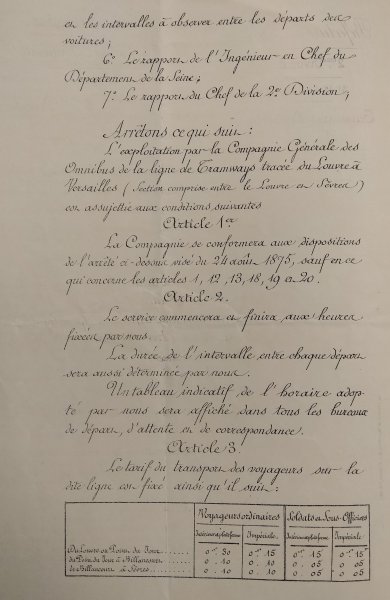 et les intervalles à observer entre les départs des
voitures;
6° Le rapport de l'Ingénieur en Chef du
Département de la Seine;
7° Le rapport du Chef de la 2e Division;
Arrêtons ce qui suit:
L'exploitation par la Compagnie Générale des
Omnibus de la ligne de Tramways tracée du Louvre à
Versailles (Section comprise entre le Louvre et Sèvres)
est assujettie aux conditions suivantes
Article 1er
La Compagnie se conformera aux dispositions
de l'arrêté ci-dessus visé du 24 août 1875, sauf en ce
qui concerne les articles 1, 12, 13, 18, 19 et 20.
Article 2.
Le service commencera et finira aux heures
fixées par nous.
La durée de l'intervalle entre chaque départ
sera aussi déterminée par nous.
Un tableau indicatif de l'horaire adop-
té par nous sera affiché dans tous les bureaux
de départ, d'attente et de correspondance.
Article 3.
Le tarif du transport des voyageurs sur la
dite ligne est fixé ainsi qu'il suit:
Voyageurs ordinaires Soldats et Sous-Officiers
Intérieur et plateforme Impériale Intérieur et plateforme Impériale
Du Louvre au Point du Jour 0f 30 0f 15 0f 15 0f 15
du Point du Jour à Billancourt 0 10 0 10 0 05 0 05
de Billancourt à Sèvres 0 10 0 10 0 05 0 05